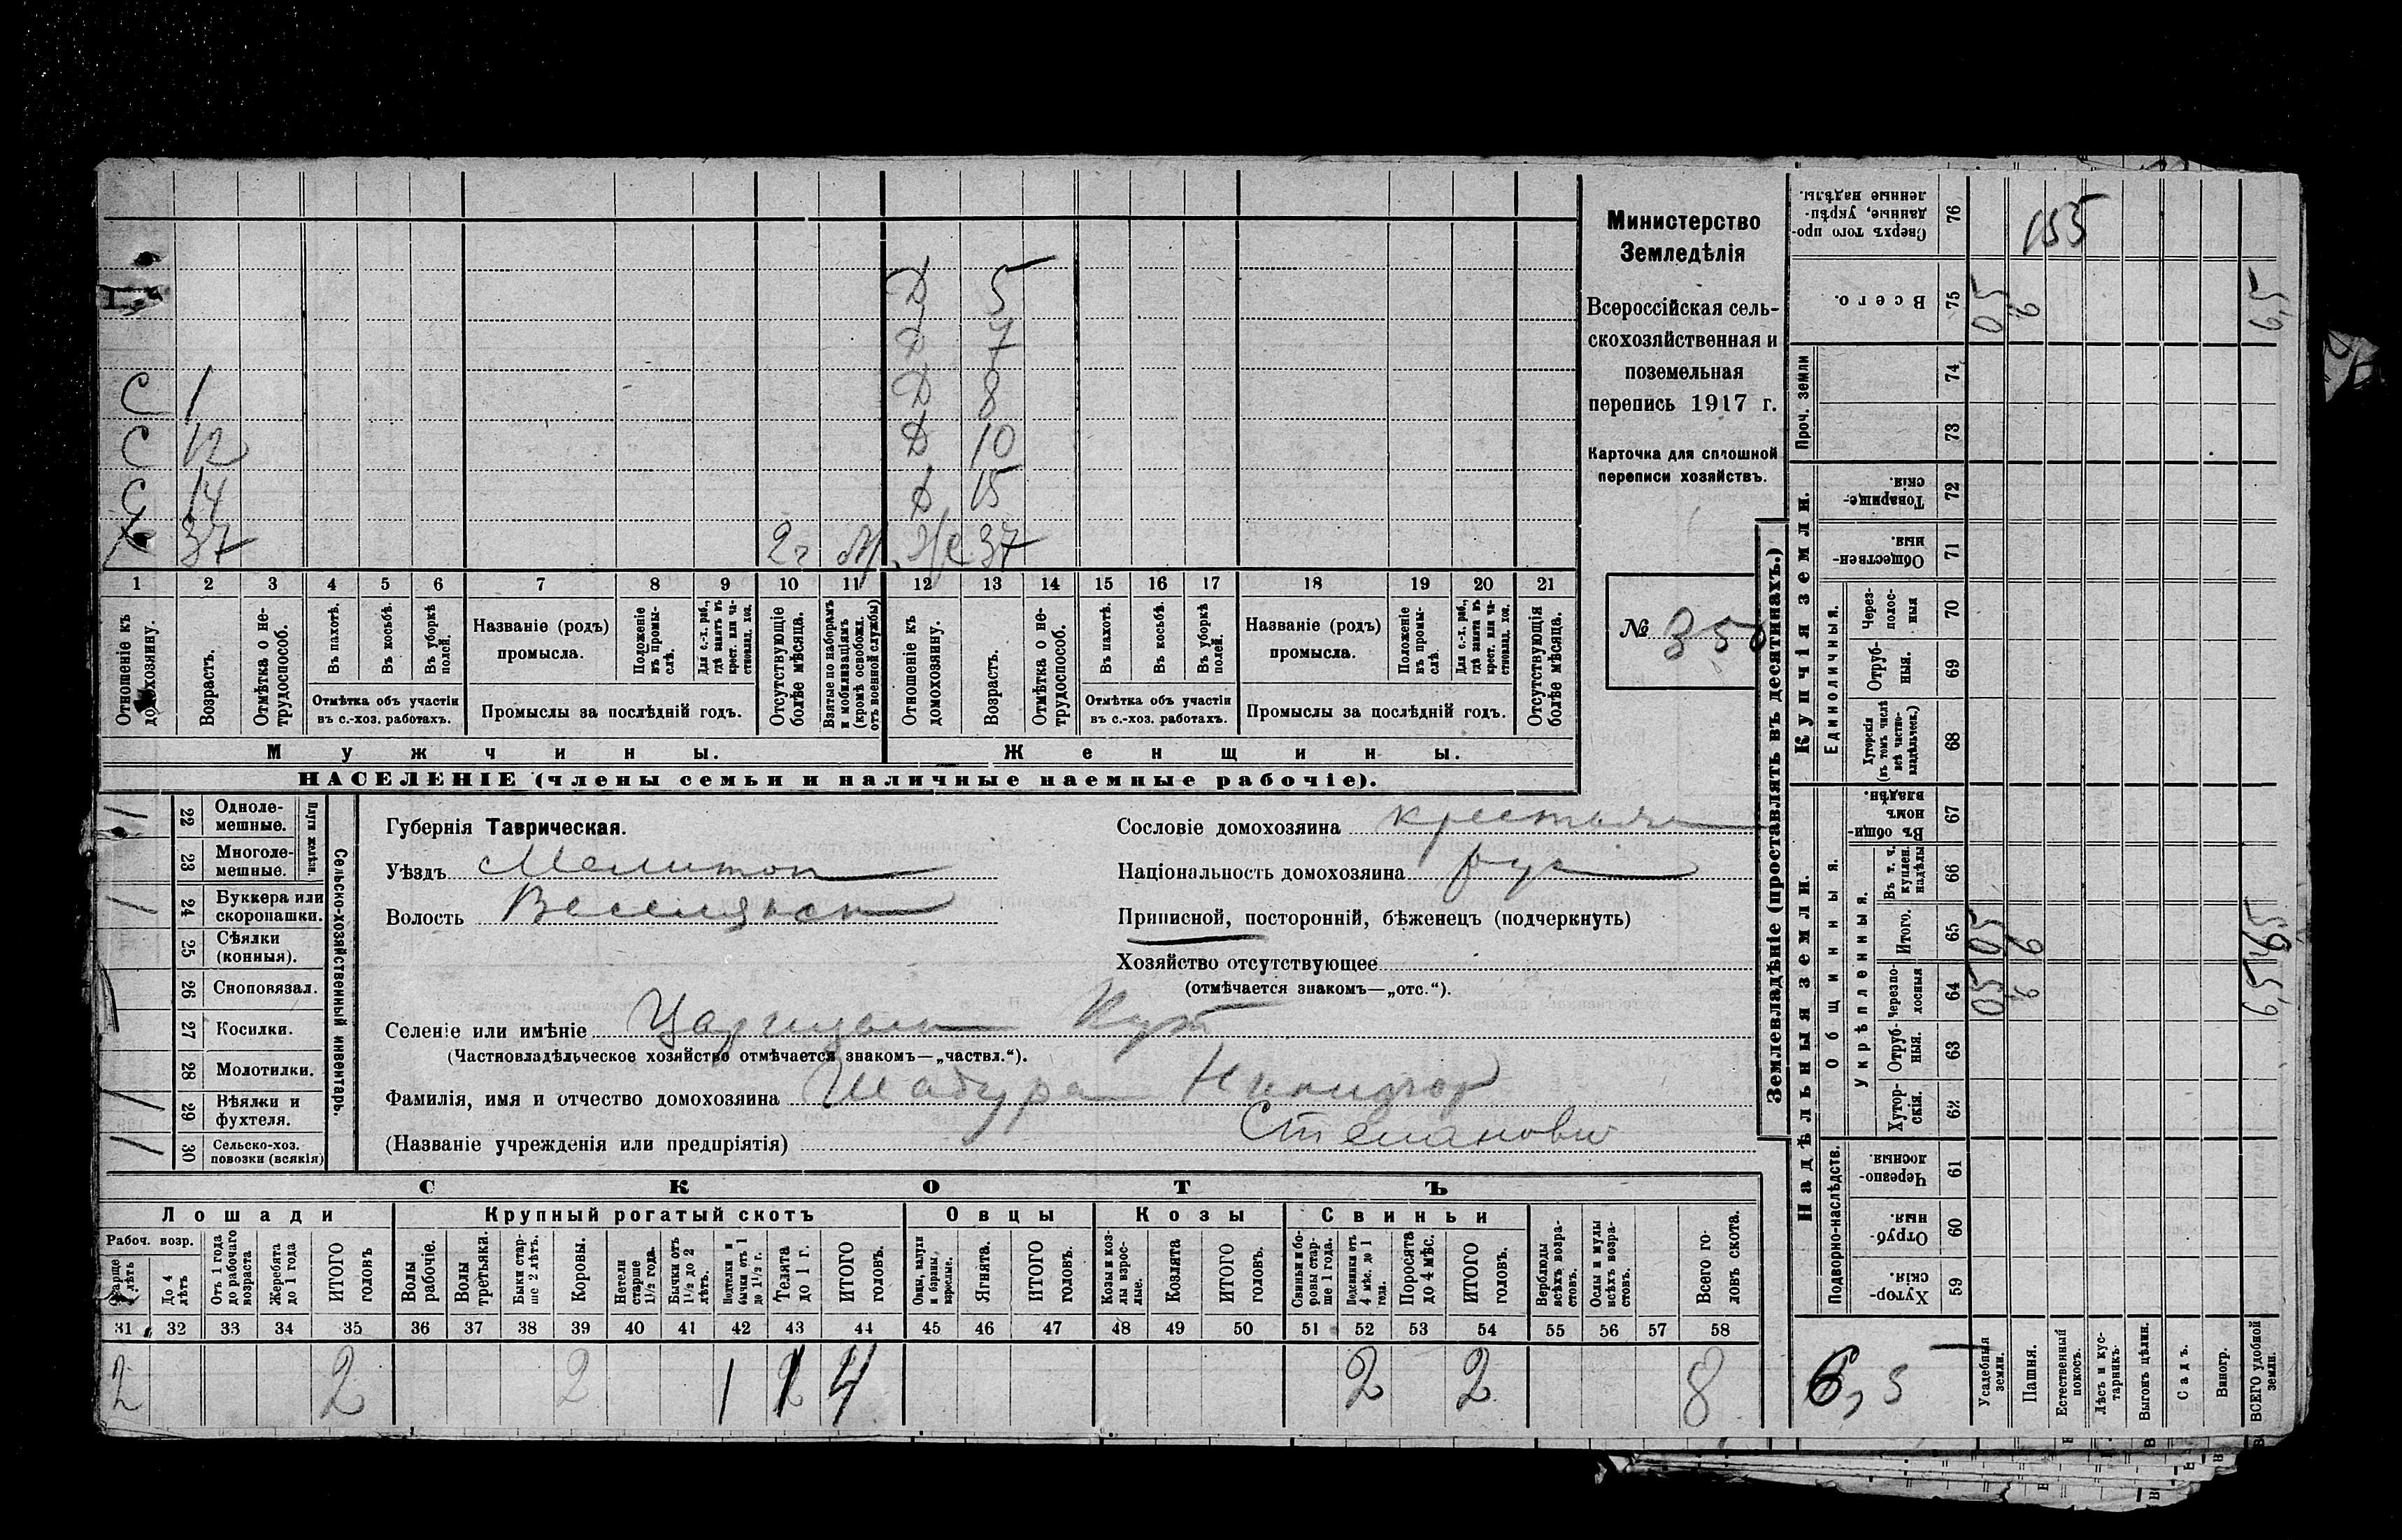 Д 5
Д 7
С 1 Д 8
С 12 Д 10
С 14 Д 15
Х 37 2 г М Ж 37
1 2 3 4 5 6 7 8 9 10 11 12 13 14 15 16 17 18 19 20 21
Отношеніе къ домохозяину.
Возрастъ.
Отмѣтка о не-трудоспособ.
Въ пахотѣ.
Въ косьбѣ.
Въ уборкѣ полей.
Отмѣтка объ участіи
въ с.-хоз. работахъ.
Названіе (родъ)
промысла.
Положеніе въ промы-слѣ.
Для с.-х. раб., гдѣ занятъ въ крест. или ча-стновлад. хоз.
Промыслы за послѣдній годъ.
Отсутствующіе болѣе мѣсяца.
Взятые по наборамъ и мобилизаціямъ (кромѣ освобожд. отъ военной службы)
Отношеніе къ домохозяину.
Возрастъ.
Отмѣтка о не-трудоспособ.
Въ пахотѣ.
Въ косьбѣ.
Въ уборкѣ полей.
Отмѣтка объ участіи
въ с.-хоз. работахъ.
Названіе (родъ)
промысла.
Положеніе въ промы-слѣ.
Для с.-х. раб., гдѣ занята въ крест. или ча-стновлад. хоз.
Промыслы за послѣдній годъ.
Отсутствующія болѣе мѣсяца.
Мужчины. Женщины.
НАСЕЛЕНІЕ (члены семьи и наличные наемные рабочіе).
Министерство
Земледѣлія
Всероссійская сель-
скохозяйственная и
поземельная
перепись 1917 г.
Карточка для сплошной
переписи хозяйствъ.
№ 350
Сельско-хозяйственный инвентарь.
Плуги желѣзн.
22 Одноле-мешные.
23 Многоле-мешные.
24 Буккера или скоропашки.
25 Сѣялки (конныя).
26 Сноповязал.
27 Косилки.
28 Молотилки.
29 Вѣялки и фухтеля.
30 Сельско-хоз. повозки (всякія)
Губернія Таврическая.
Уѣздъ Мелитоп
Волость Веселянск
Сословіе домохозяина крестьян
Національность домохозяина рус
Приписной, посторонній, бѣженецъ (подчеркнуть)
Хозяйство отсутствующее
(отмѣчается знакомъ—„отс.“).
Селеніе или имѣніе Царицын Кут
(Частновладѣльческое хозяйство отмѣчается знакомъ—„частвл.“).
Фамилія, имя и отчество домохозяина Шадура Никифор
Степанович
(Названіе учрежденія или предпріятія)
СКОТЪ
Лошади Крупный рогатый скотъ Овцы Козы Свиньи
Рабоч. возр.
Старше 4 лѣтъ
До 4 лѣтъ
Отъ 1 года до рабочаго возраста
Жеребята до 1 года
ИТОГО головъ
Волы рабочіе.
Волы третьяки.
Быки стар-ше 2 лѣтъ.
Коровы.
Нетели старше 1 1/2 года.
Бычки отъ 1 1/2 до 2 лѣтъ.
Подтелки и бычки отъ 1 до 1 1/2 г.
Телята до 1 г.
ИТОГО головъ.
Овцы, валухи и бараны взрослые.
Ягнята.
ИТОГО головъ.
Козы и коз-лы взрос-лые.
Козлята
ИТОГО головъ.
Свиньи и бо-ровы стар-ше 1 года.
Подсвинки отъ 4 мѣс. до 1 года.
Поросята до 4 мѣс.
ИТОГО головъ.
Верблюды всѣхъ возра-стовъ.
Ослы и мулы всѣхъ возра-стовъ.
Всего го-ловъ скота.
31 32 33 34 35 36 37 38 39 40 41 42 43 44 45 46 47 48 49 50 51 52 53 54 55 56 57 58
2 2 2 1 1 4 2 2 8
Землевладѣніе (проставлять въ десятинахъ.)
Купчія земли.
Надѣльныя земли.
Сверхъ того про-данные, укрѣп-ленные надѣлы. 76
155
Всего. 75
05 6 6,5
Проч. земли 74
73
Товарище-скія. 72
Обществен-ныя. 71
Единоличныя.
Через-полос-ныя 70
Отруб-ныя. 69
Хуторскія (въ томъ числѣ всѣ частно-владѣльческ.) 68
Общинныя.
Въ общин-номъ владѣн. 67
Укрѣпленныя.
Въ т. ч. куплен. надѣлы 66
Итого. 65
05 6 6,5
Черезпо-лосныя 64
05 6 6,5
Отруб-ныя. 63
Хутор-скія. 62
Подворно-наслѣдств.
Черезпо-лосныя. 61
Отруб-ныя. 60
Хутор-скія. 59
6,5
Усадебныя земли.
Пашня.
Естественный покосъ.
Лѣсъ и кус-тарникъ.
Выгонъ цѣлин.
Садъ.
Виногр.
ВСЕГО удобной земли.